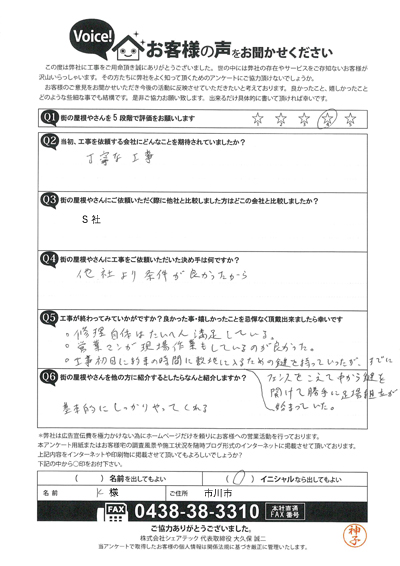 Voice!
お客様の声をお聞かせください
この度は弊社に工事をご用命頂き誠にありがとうございました。世の中には弊社の存在やサービスをご存知ないお客様が
沢山いらっしゃいます。その方たちに弊社をよく知って頂くためのアンケートにご協力頂けないでしょうか。
お客様のご意見をお聞かせいただき今後の活動に反映させていただきたいと考えております。良かったこと、嬉しかったこと
どのような些細な事でも結構です。是非ご協力お願い致します。出来るだけ具体的に書いて頂ければ幸いです。
Q1 街の屋根やさんを5段階で評価をお願いします ☆ ☆ ☆ ☆ ☆
Q2 当初、工事を依頼する会社にどんなことを期待されていましたか？
丁寧な工事
Q3 街の屋根やさんにご依頼いただく際に他社と比較しました方はどこの会社と比較しましたか？
S社
Q4 街の屋根やさんに工事をご依頼いただいた決め手は何ですか？
他社より条件が良かったから
Q5 工事が終わってみていかがですか？良かった事・嬉しかったことを忌憚なく頂戴出来ましたら幸いです
○修理自体はたいへん満足している。
○営業マンが現場作業もしているのが良かった。
○工事初日に約束の時間に敷地に入るための鍵を持っていったが、すでに
フェンスをこえて中から鍵を
開けて勝手に足場組立が
始まっていた。
Q6 街の屋根やさんを他の方に紹介するとしたらなんと紹介しますか？
基本的にしっかりやってくれる
※弊社は広告宣伝費を極力かけない為にホームページだけを頼りにお客様への営業活動を行っております。
本アンケート用紙またはお客様宅の調査風景や施工状況を随時ブログ形式のインターネットに掲載させて頂いております。
上記内容をインターネットや印刷物に掲載させて頂いてもよろしいでしょうか？
下記の中から〇印をお付け下さい。
（　　）名前を出してもよい （〇）イニシャルなら出してもよい
名前 K 様 ご住所 市川市
FAX 0438-38-3310 本社直通 FAX番号
ご協力ありがとうございました。
株式会社シェアテック 代表取締役 大久保 誠二
当アンケートで取得したお客様の個人情報は関係法規に基づき厳正に管理いたします。
神子